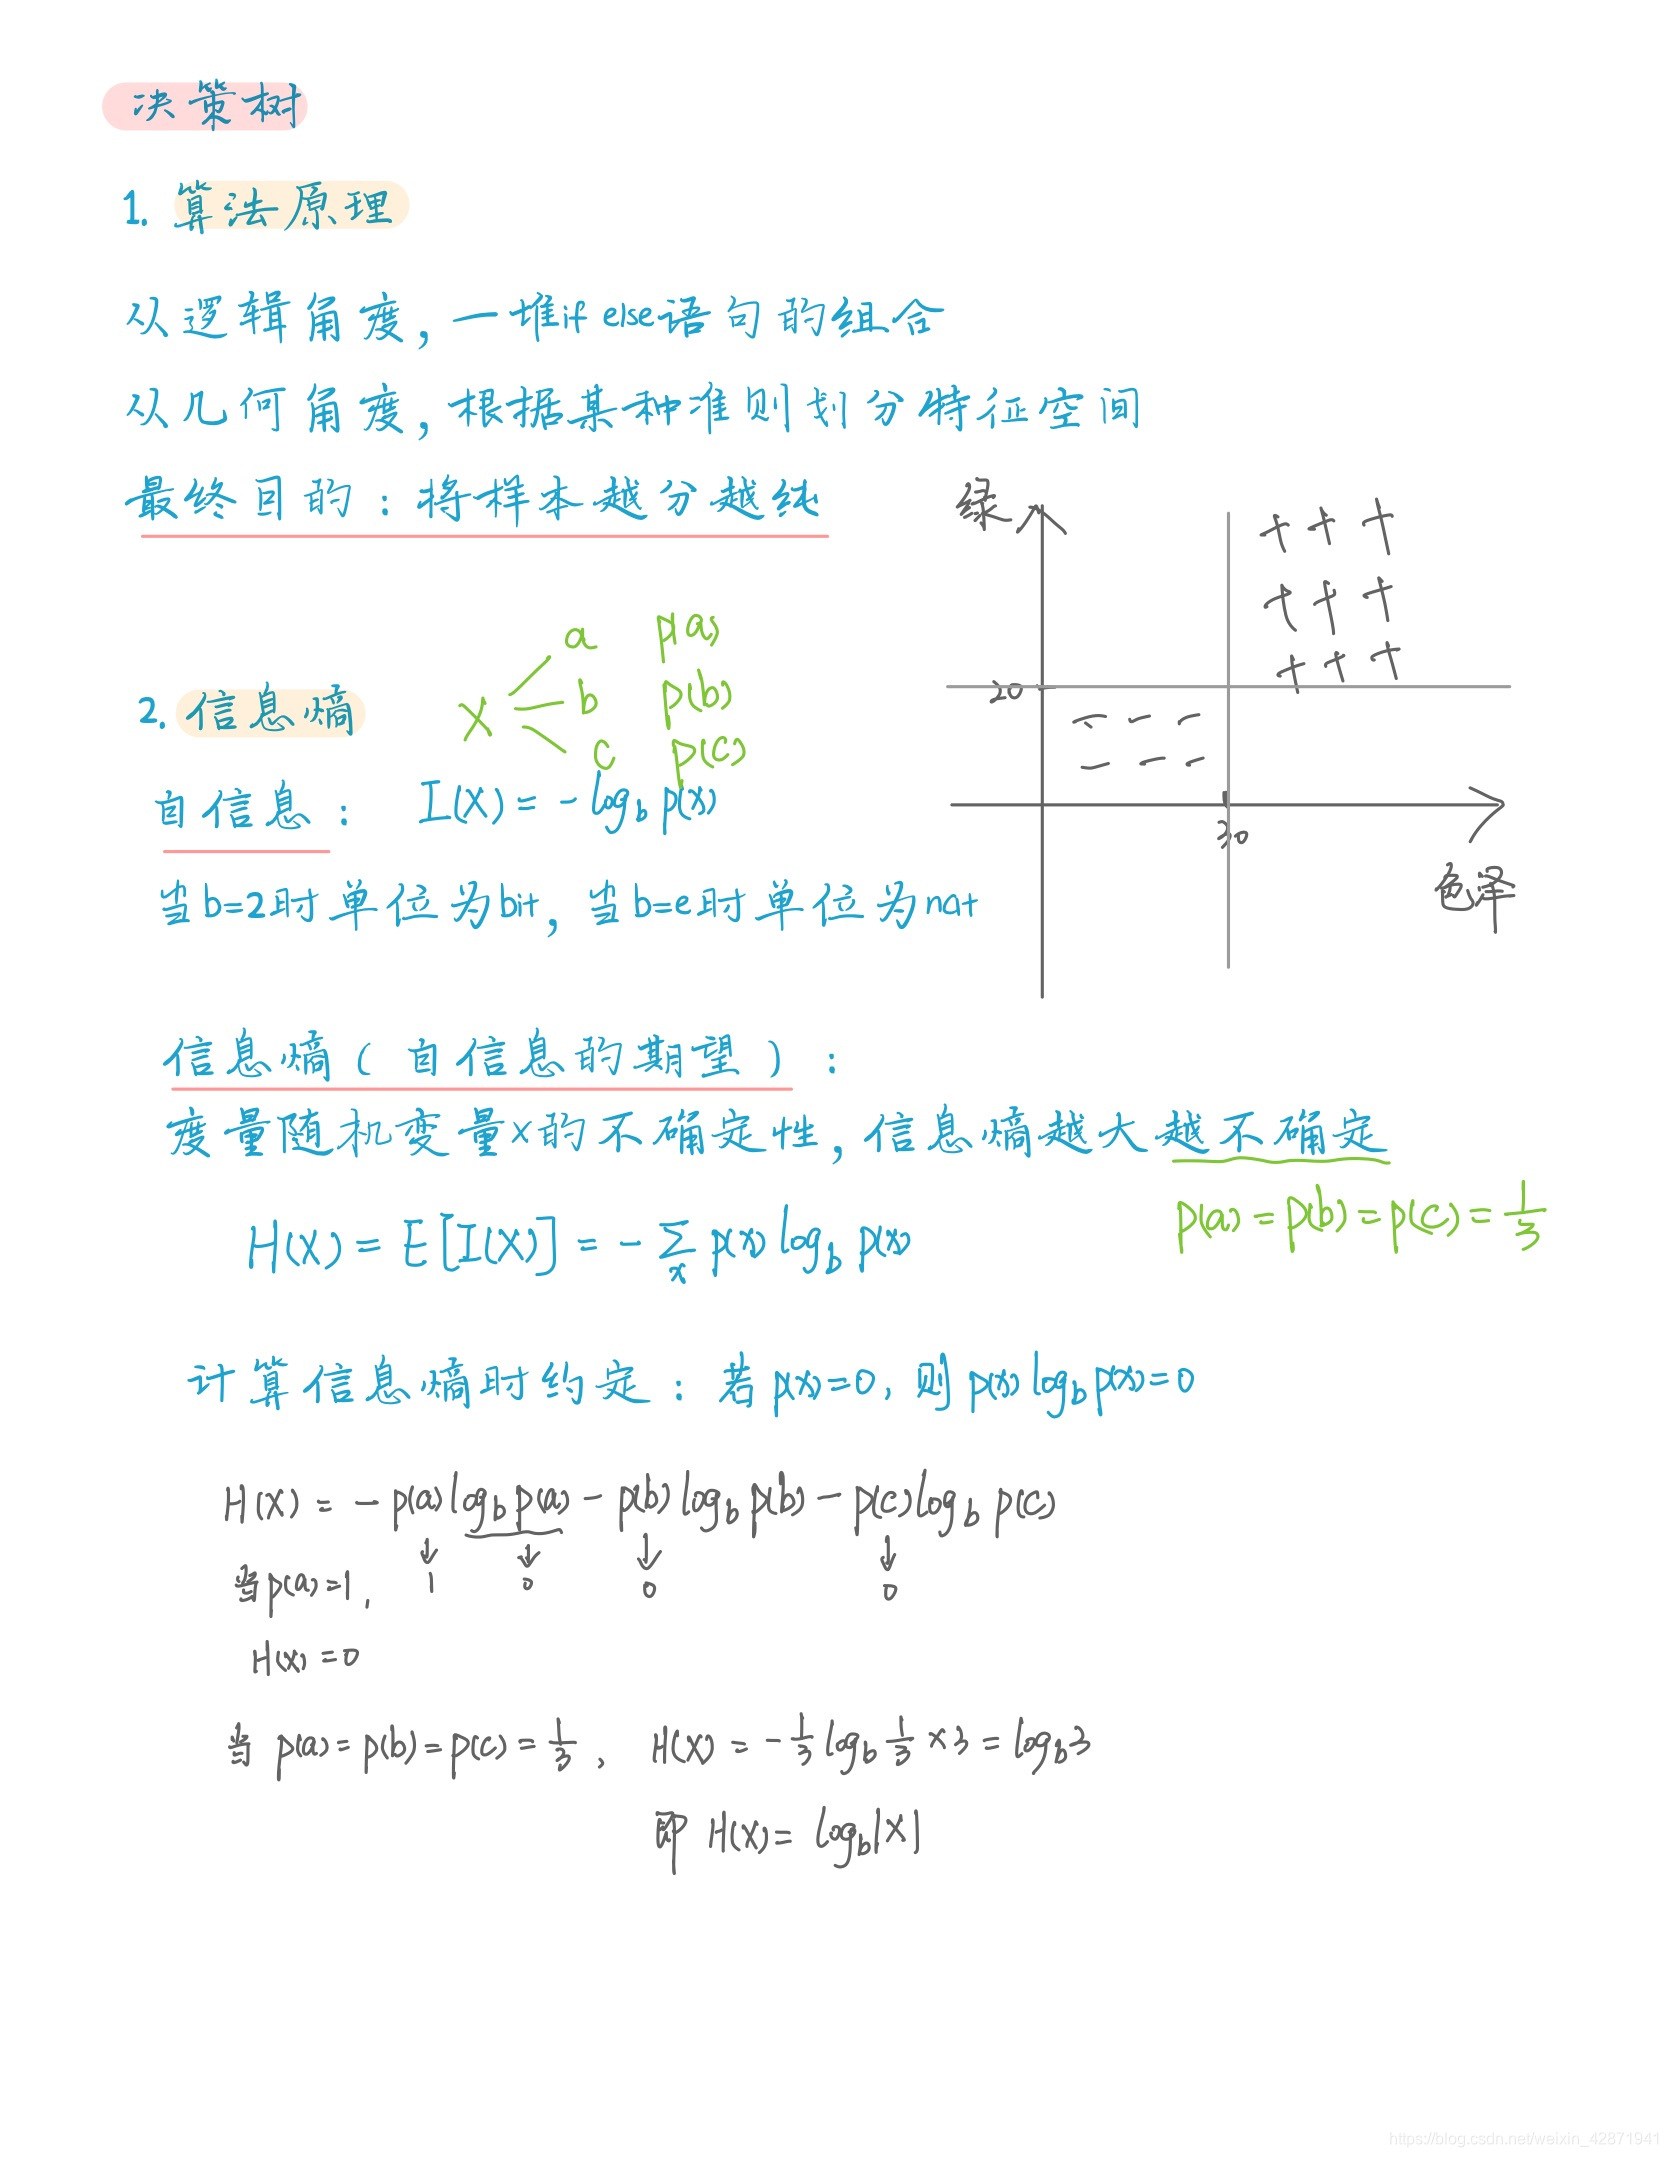 决策树
1. 算法原理
从逻辑角度，一堆if else语句的组合
从几何角度，根据某种准则划分特征空间
最终目的：将样本越分越纯
绿
+ + +
+ + +
+ + +
20
- - -
- - -
30
色泽
2. 信息熵
X
a p(a)
b p(b)
c p(c)
自信息： I(X) = -log_b p(x)
当b=2时单位为bit，当b=e时单位为nat
信息熵（自信息的期望）：
度量随机变量x的不确定性，信息熵越大越不确定
p(a) = p(b) = p(c) = 1/3
H(X) = E[I(X)] = -∑_x p(x) log_b p(x)
计算信息熵时约定：若p(x)=0，则p(x) log_b p(x)=0
H(X) = -p(a) log_b p(a) - p(b) log_b p(b) - p(c) log_b p(c)
↓ ↓ ↓ ↓
当p(a)=1, 1 0 0 0
H(X) = 0
当 p(a) = p(b) = p(c) = 1/3， H(X) = -1/3 log_b 1/3 × 3 = log_b 3
即 H(X) = log_b |X|
https://blog.csdn.net/weixin_42871941